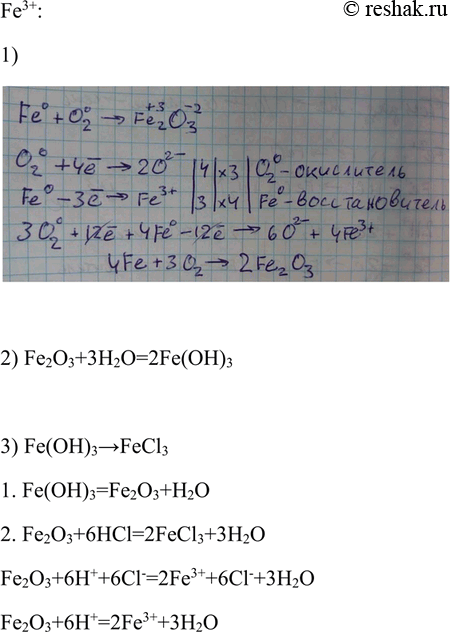 © reshak.ru
Fe³⁺:
1)
Fe⁰ + O₂⁰ → Fe₂⁺³O₃⁻²
O₂⁰ + 4ē → 2O²⁻ | 4 | ×3 | O₂⁰ - окислитель
Fe⁰ - 3ē → Fe³⁺ | 3 | ×4 | Fe⁰ - восстановитель
3O₂⁰ + 12ē + 4Fe⁰ - 12ē → 6O²⁻ + 4Fe³⁺
4Fe + 3O₂ → 2Fe₂O₃
2) Fe₂O₃+3H₂O=2Fe(OH)₃
3) Fe(OH)₃→FeCl₃
1. Fe(OH)₃=Fe₂O₃+H₂O
2. Fe₂O₃+6HCl=2FeCl₃+3H₂O
Fe₂O₃+6H⁺+6Cl⁻=2Fe³⁺+6Cl⁻+3H₂O
Fe₂O₃+6H⁺=2Fe³⁺+3H₂O